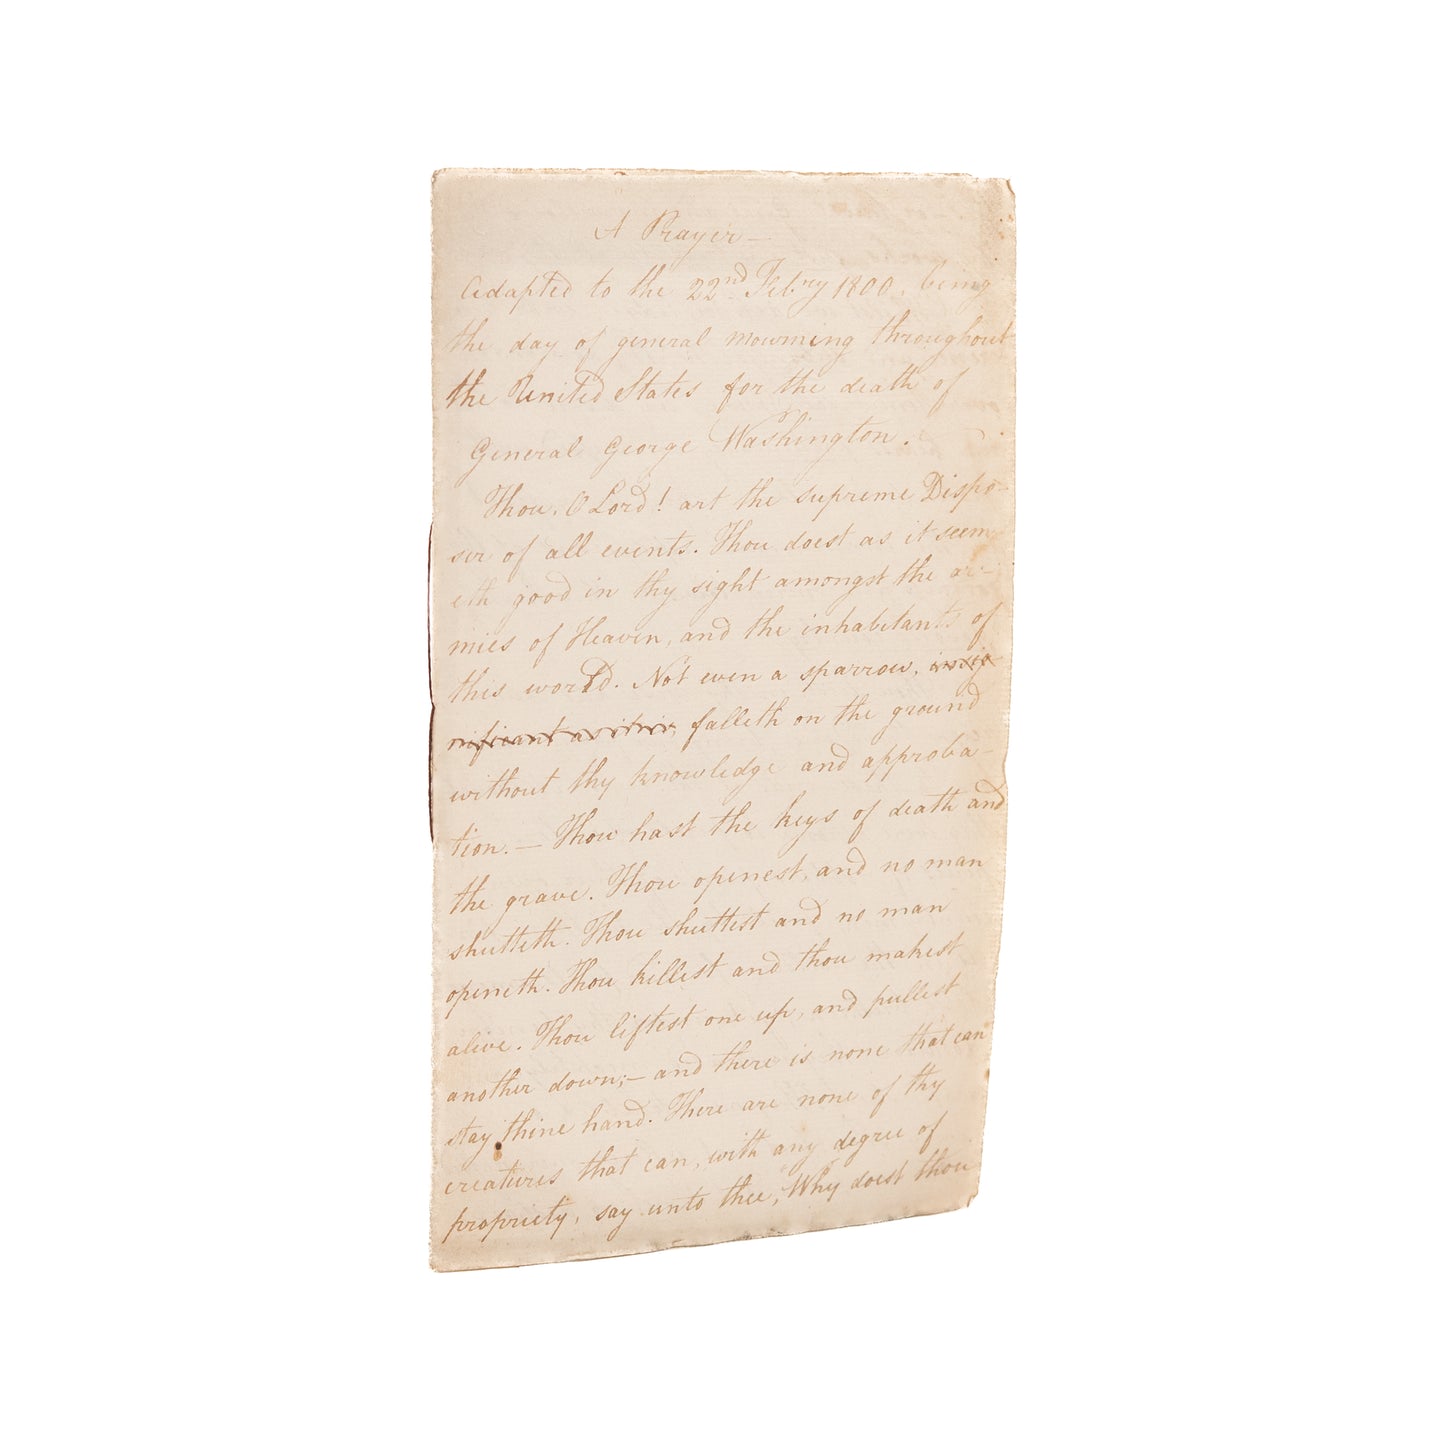 A Prayer —
Adapted to the 22nd Febry 1800. being
the day of general mourning throughout
the United States for the death of
General George Washington.
Thou, O Lord! art the supreme Dispo-
ser of all events. Thou doest as it seem-
eth good in thy sight amongst the ar-
mies of Heaven, and the inhabitants of
this world. Not even a sparrow, insig
nificant as it is, falleth on the ground
without thy knowledge and approba-
tion. — Thou hast the keys of death and
the grave. Thou openest, and no man
shutteth. Thou shuttest and no man
openeth. Thou killest and thou makest
alive. Thou liftest one up, and pullest
another down; — and there is none that can
stay thine hand. There are none of thy
creatures that can, with any degree of
propriety, say unto thee, "Why doest thou